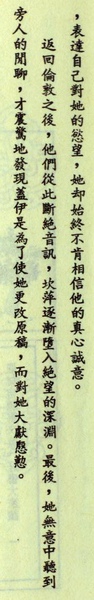 ，表達自己對她的慾望，她卻始終不肯相信他的真心誠意。
返回倫敦之後，他們從此斷絕音訊，坎萍逐漸墮入絕望的深淵。最後，她無意中聽到
旁人的閒聊，才震驚地發現蓋伊是為了使她更改原稿，而對她大獻慇懃。